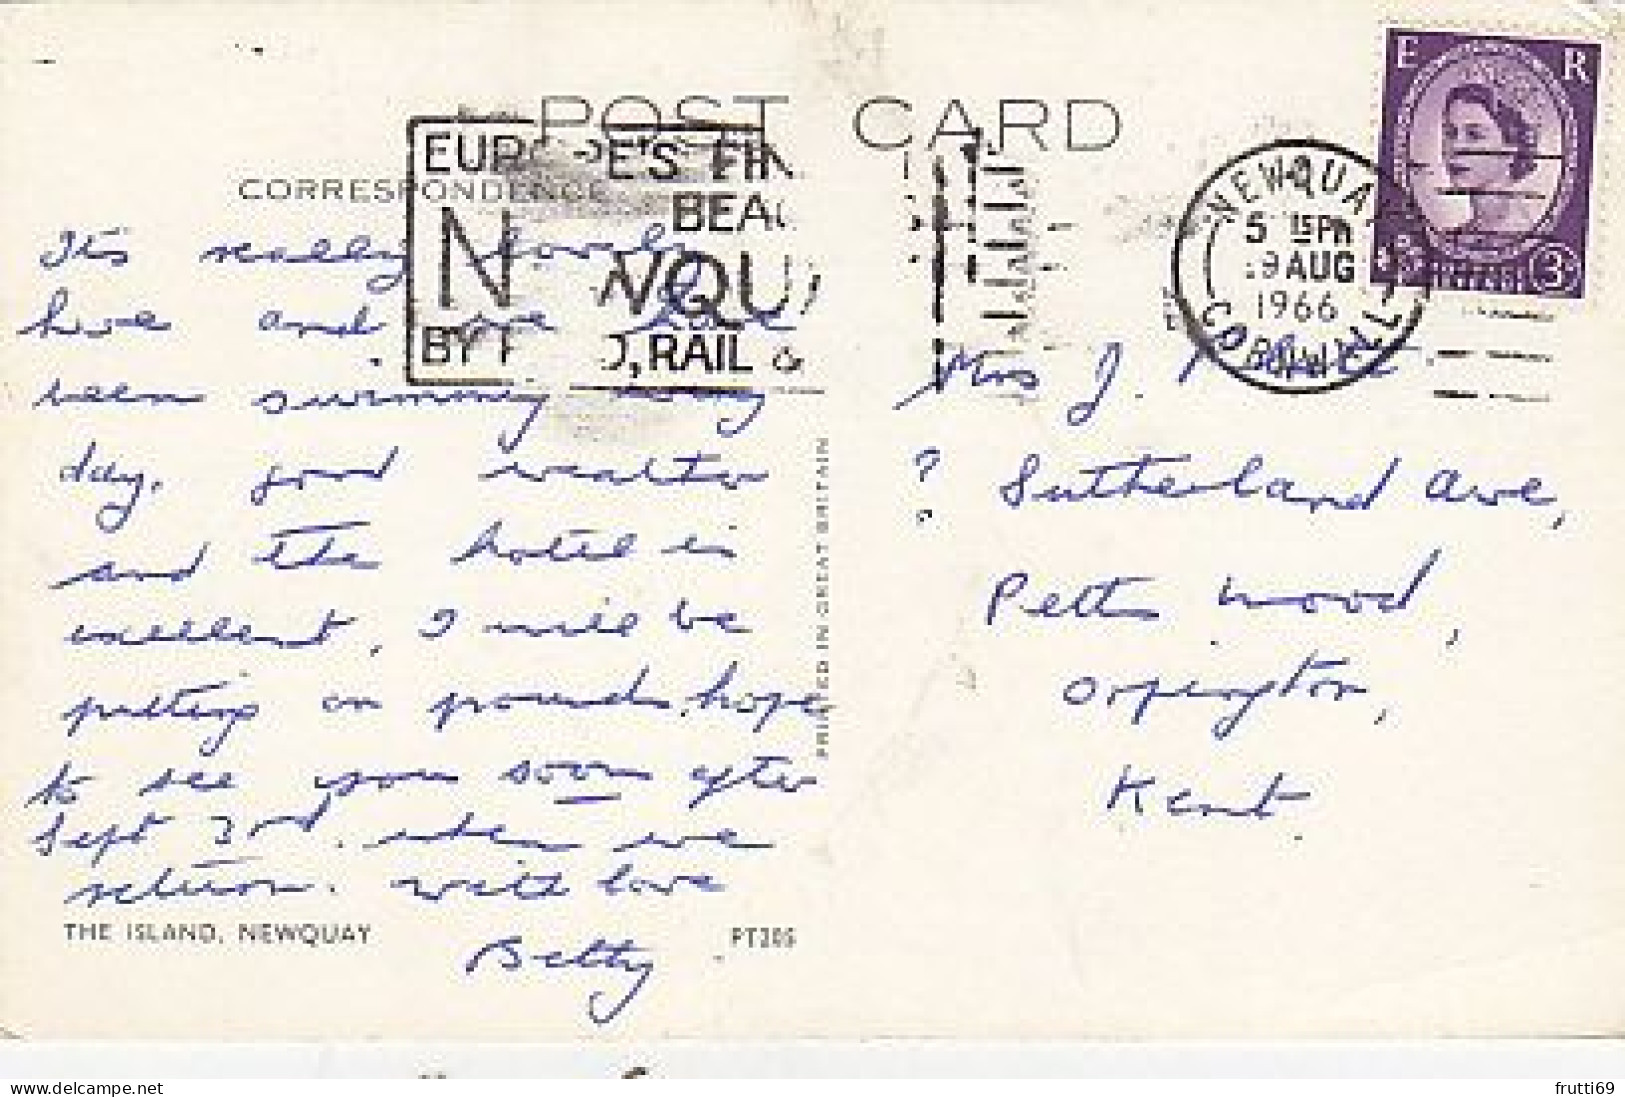 POST CARD
CORRESPONDENCE
EUROPE'S FIN
BEAC
NEWQUA
BY ROAD, RAIL &
E R
NEWQUAY
5 15PM
19 AUG
1966
CORNWALL
It's really lovely
here and we have
been swimming every
day, good weather
and the hotel is
excellent, I will be
putting on pounds, hope
to see you soon after
Sept 3rd. when we
return. With love
Betty
THE ISLAND, NEWQUAY
PT205
PRINTED IN GREAT BRITAIN
Mrs J.
? Sutherland Ave,
Petts Wood,
Orpington,
Kent.
delcampe.net
frutti69